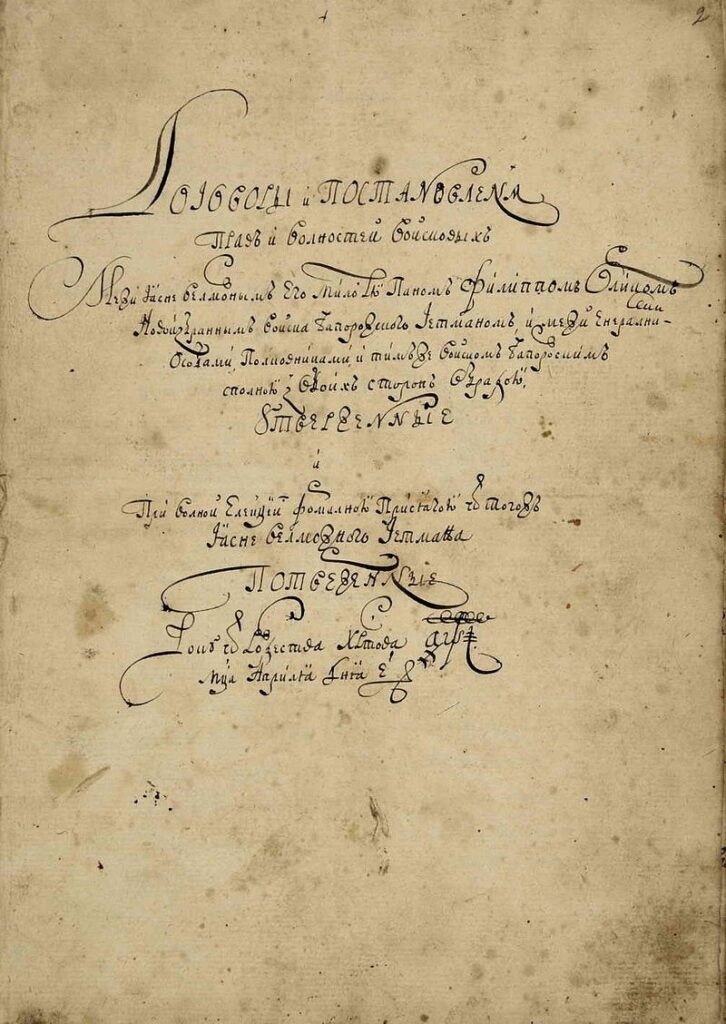 2
Договоры и Постановленя
Правъ и волностей войсковыхъ
Межи Ясне велможнымъ Его Милостю Паномъ Филиппомъ Орликомъ
Новоизбраннымъ войска Запорожского Гетманомъ, и межи Енералними
Особами, Полковниками, и тимъ же войскомъ Запорозкимъ
сполною з обоихъ сторонъ обрадою,
Утверженные
и
При волной Елекции формалною присягою ѿ тогожъ
Ясне велможного Гетмана
Потверженные
Року ѿ Рождества Христова ҂аѱі
мца Априля дня е҃